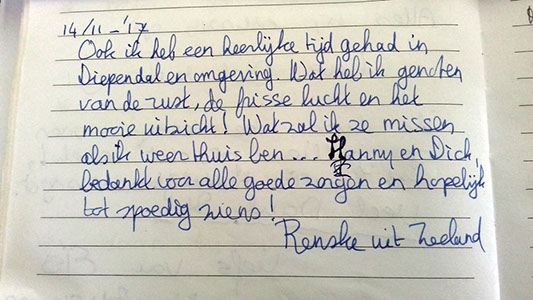 14/11-'17
Ook ik heb een heerlijke tijd gehad in
Diependal en omgeving. Wat heb ik genoten
van de rust, de frisse lucht en het
mooie uitzicht! Wat zal ik ze missen
als ik weer thuis ben... Hanny en Dick,
bedankt voor alle goede zorgen en hopelijk
tot spoedig ziens!
Renske uit Zeeland